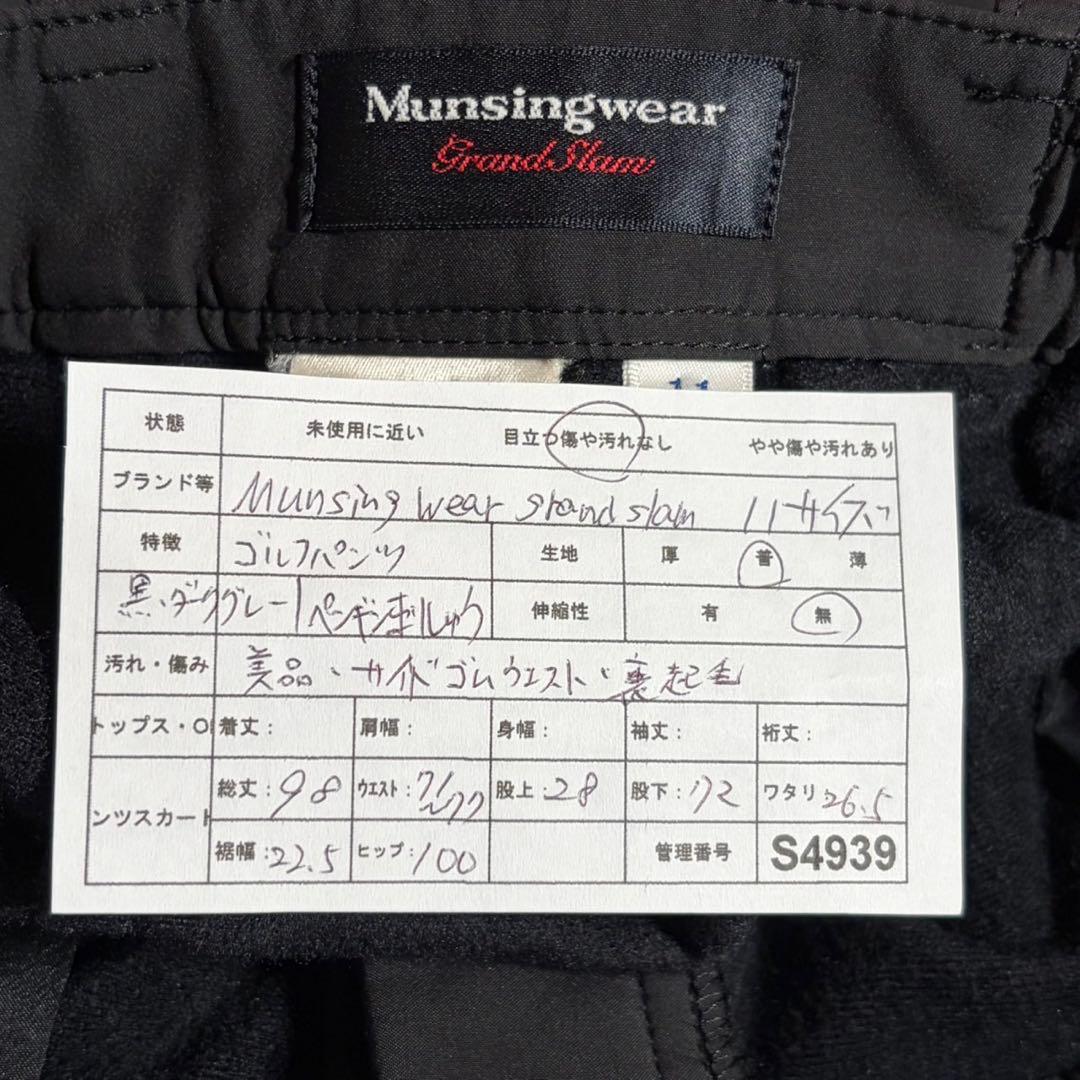 Munsingwear
Grand Slam
11
状態 未使用に近い 目立つ傷や汚れなし やや傷や汚れあり
ブランド等 Munsing wear grand slam 11サイズ
特徴 ゴルフパンツ 生地 厚 普 薄
黒・ダークグレー ペンギン刺しゅう 伸縮性 有 無
汚れ・傷み 美品・サイドゴムウエスト・裏起毛
トップス・O 着丈: 肩幅: 身幅: 袖丈: 裄丈:
ンツスカート 総丈:98 ウエスト:71〜77 股上:28 股下:72 ワタリ:26.5
裾幅:22.5 ヒップ:100 管理番号 S4939